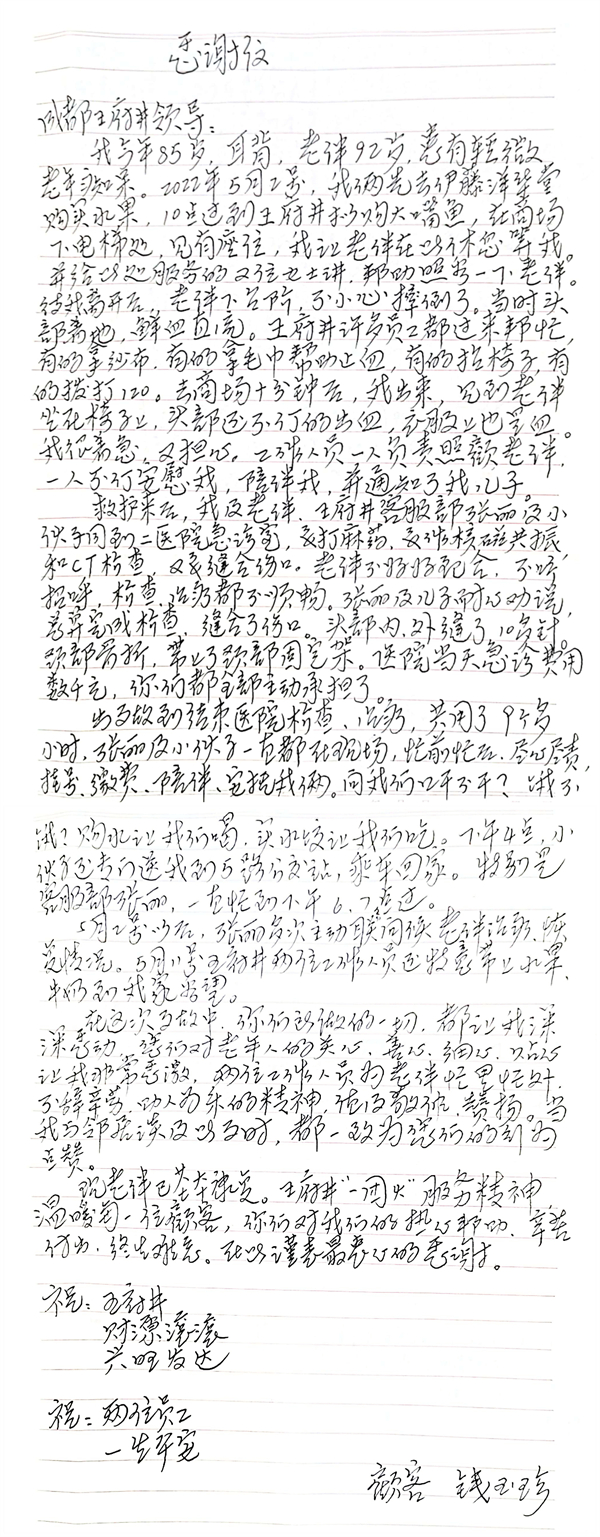 感谢信
成都王府井领导:
我今年85岁,耳背,老伴92岁,患有轻微
老年痴呆。2022年5月2号,我俩先去伊藤洋华堂
购买水果,10点过到王府井打购大嘴鱼,在商场
下电梯处,见有座位,我让老伴在此休息等我。
并给此处服务的一位女士讲,帮助照看一下老伴。
待我离开后,老伴下台阶,不小心摔倒了。当时头
部着地,鲜血直流。王府井许多员工都过来帮忙,
有的拿纱布,有的拿毛巾帮助止血,有的抬椅子,有
的拨打120。去商场十分钟后,我出来,见到老伴
坐在椅子上,头部还不停的出血,衣服上也是血。
我很着急,又担心。工作人员一人负责照顾老伴,
一人不停安慰我,陪伴我,并通知了我儿子。
救护来后,我及老伴、王府井客服部张丽及小
伙子同到二医院急诊室,要打麻药,要做核磁共振,
和CT检查,又要缝合伤口。老伴不好好配合,不听
招呼,检查、治疗都不顺畅。张丽及儿子耐心劝说,
总算完成检查,缝合了伤口。头部内、外缝了10多针。
颈部骨折,带上了颈部固定架。医院当天急诊费用
数千元,你们都全部主动承担了。
出事故到结束医院检查、治疗,共用了9个多
小时,张丽及小伙子一直都在现场,忙前忙后、尽心尽责,
挂号、缴费、陪伴、安抚我俩。问我们口干不干?饿不
饿?购水让我们喝,买水饺让我们吃。下午4点,小
伙子还专门送我到5路公交站,乘车回家。特别是
客服部张丽,一直忙到下午6、7点过。
5月2号以后,张丽多次主动联系问候老伴治疗、恢
复情况。5月11号王府井两位工作人员还特意带上水果、
牛奶到我家看望。
在这次事故中,你们所做的一切,都让我深
深感动,您们对老年人的关心、善心、细心、贴心
让我非常感激,两位工作人员为老伴忙里忙外,
不辞辛劳,助人为乐的精神,值得敬佩、赞扬。当
我与邻居谈及此事时,都一致为您们的行为
点赞。
现老伴已基本康复。王府井“一团火”服务精神
温暖每一位顾客,你们对我们的热心帮助、辛苦
付出,终生难忘。在此谨表最衷心的感谢。
祝:王府井
财源滚滚
兴旺发达
祝:两位员工
一生平安
顾客 钱玉珍